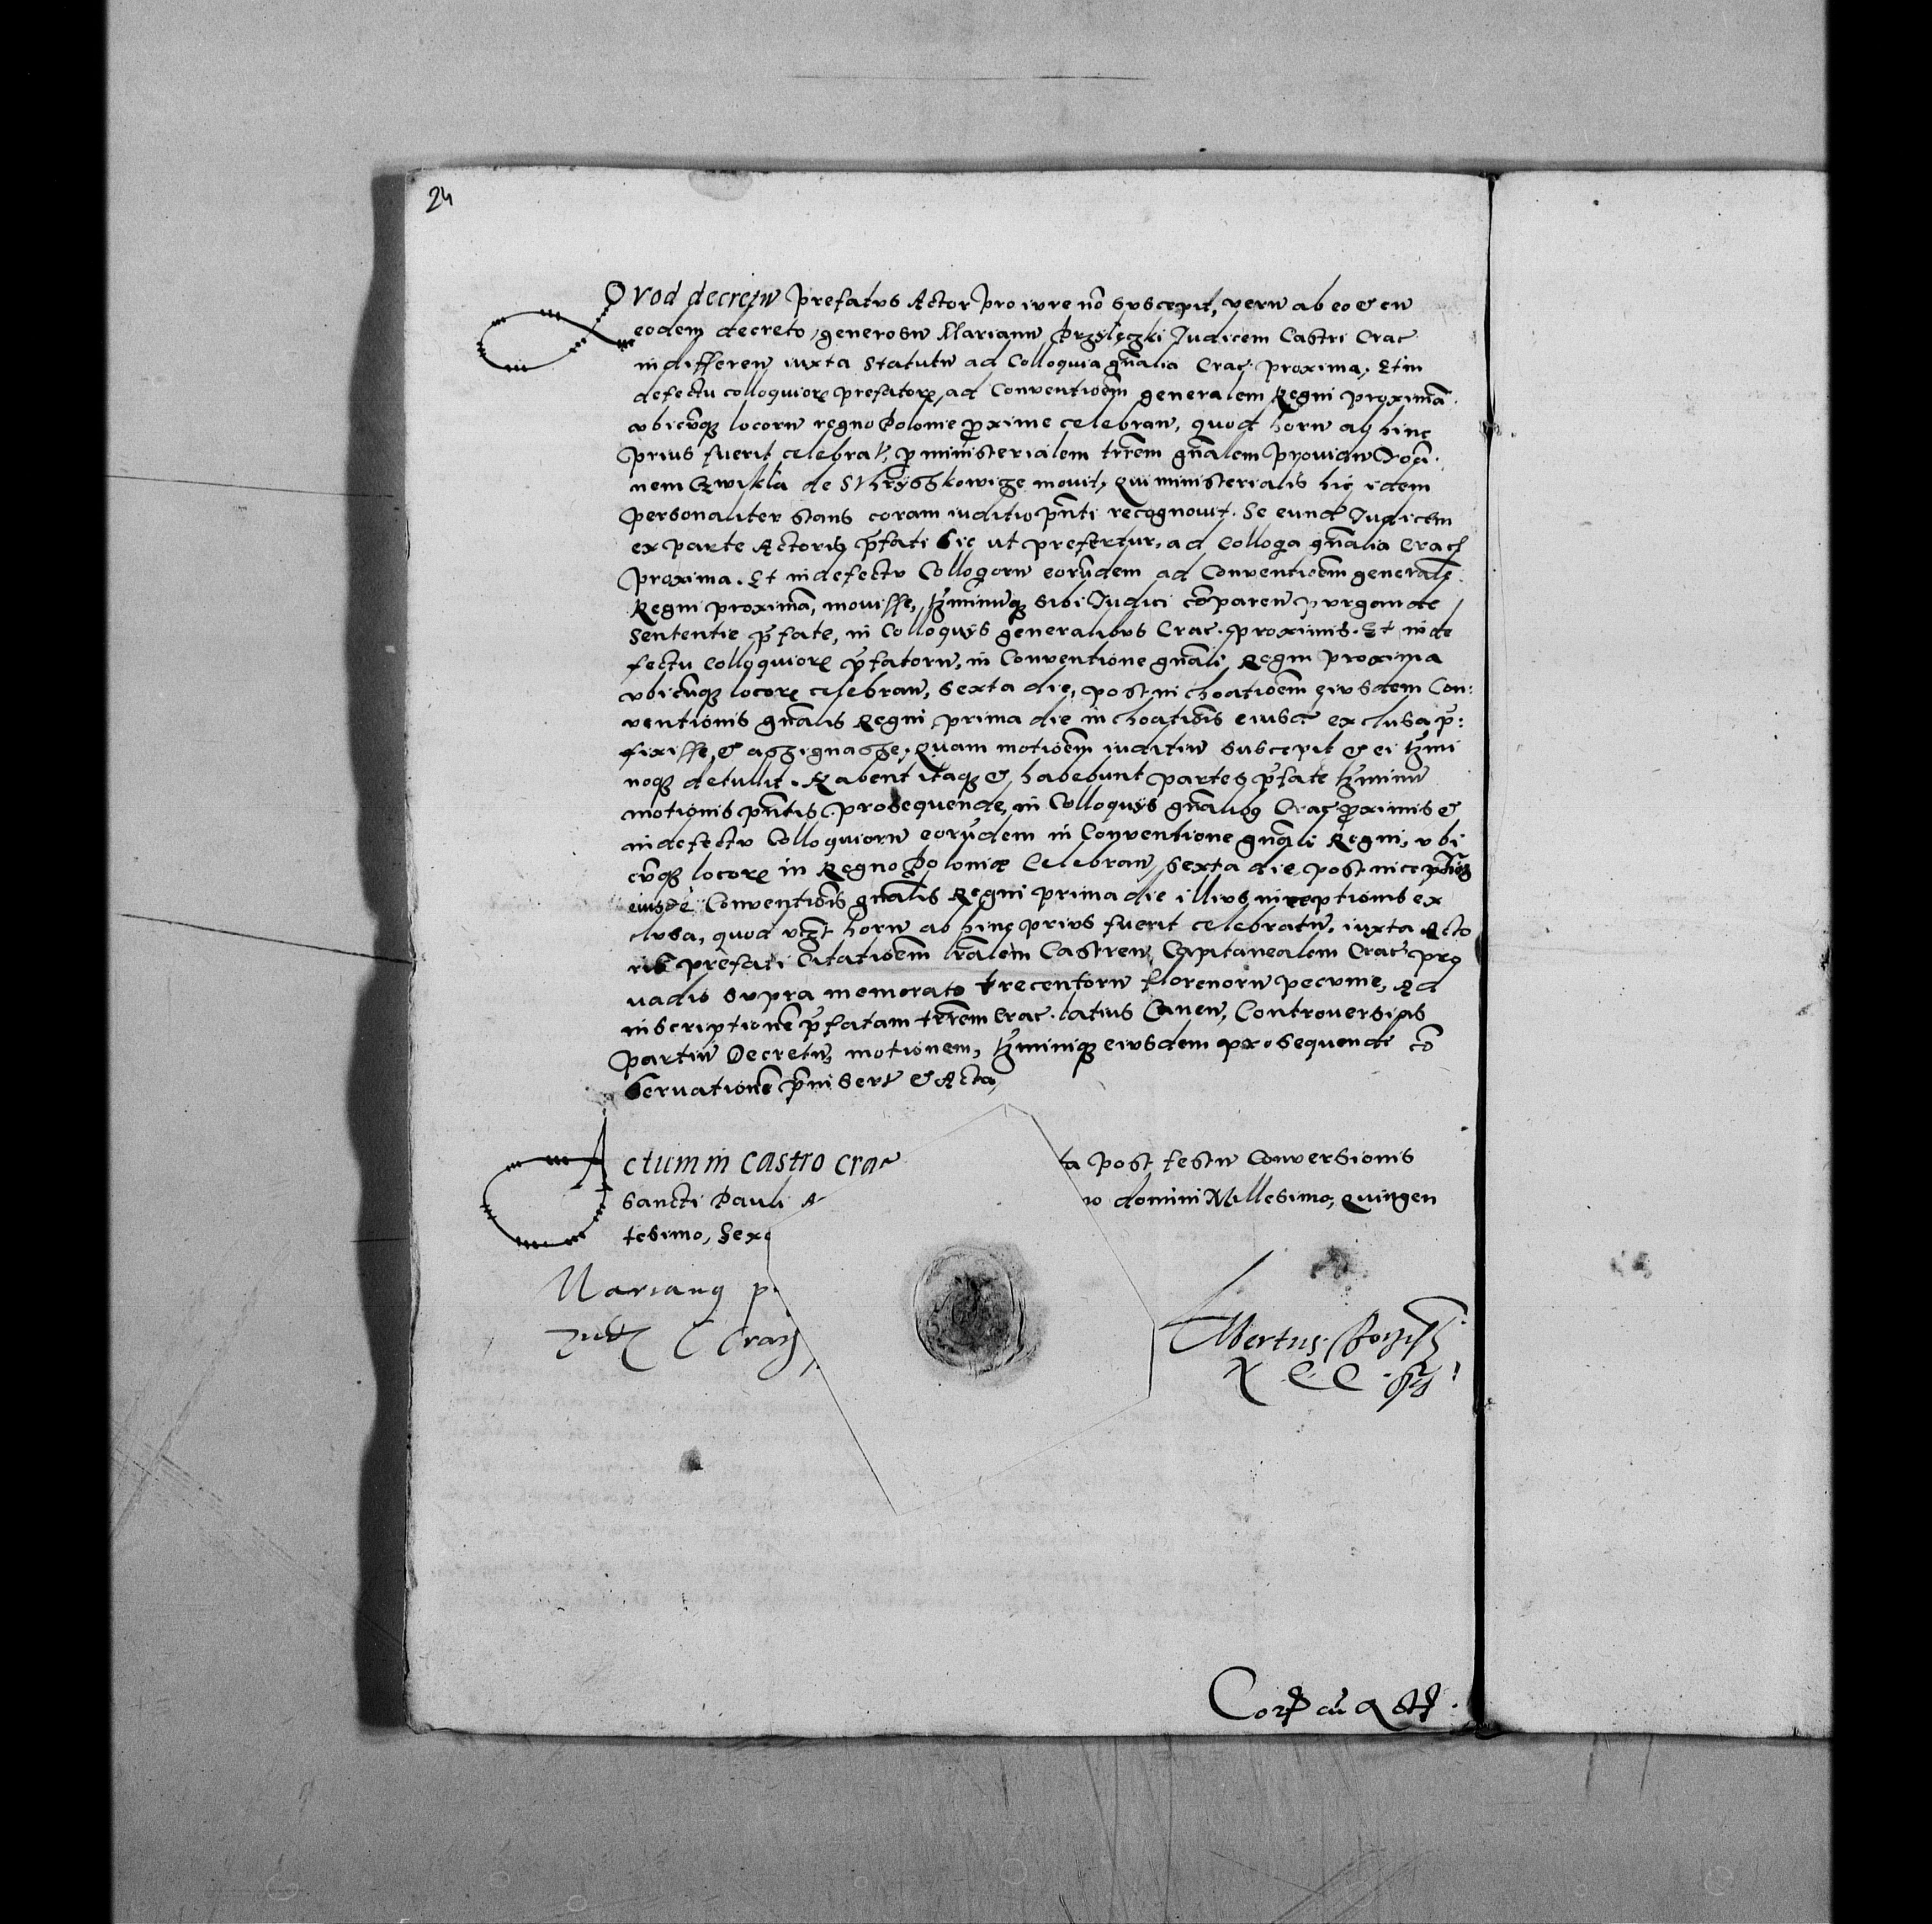 24
Quod decretu prefatus Actor pro iure no suscepit, veru ab eo & cu
eodem decreto, generosu Marianu Przyleczki Iudicem Castri Crac
indifferen iuxta Statutu ad Colloquia gnalia Crac. proxima, Et in
defectu colloquior prefator, ad Conventioem generalem Regni proxima.
ubicuq locoru regno Polonie proxime celebran, quod horu ab hinc
prius fuerit celebrat, p ministerialem trrem gnalem providu
nem de movit, Qui ministerialis hic idem
personaliter stans coram iuditio pnti recognovit. Se eund Iudicem
ex parte Actoris pfati sic ut prefertur, ad Colloqa gnalia Crac
proxima. Et in defectu Colloqioru eorudem ad Conventioem generale
Regni proxima, movisse, tminuq sibi Iudici comparen purgande
sententie pfate, in Colloquys generalibus Crac. proximis. Et in de
fectu colloquior pfatoru, in Conventione gnali Regni proxima
ubicuq locor celebran, sexta die, post inchoatioem eiusdem Con:
ventionis gnalis Regni prima die inchoationis eiusd exclusa p:
fixisse, & assignasse, Quam motioem iuditiu suscepit & ei tmi
noq detulit. Habent itaq & habebunt partes pfate tminu
motionis pntis prosequende, in Colloquys gnalibus Crac proximis &
in defectu Colloquioru eorudem in Conventione gnali Regni, ubi
cuq locor in Regno Poloniæ Celebran, sexta die post inceptios
eiusde Conventiois gnalis Regni prima die illius inceptionis ex
clusa, quod horu ab hinc prius fuerit celebratu, iuxta Acto
ris prefati Citatioem lralem Castren, Capitanealem Crac pro
vadio supra memorato trecentoru florenoru pecunie, Ad
inscriptione pfatam trrem Crac. latius Canen, Controversias
partiu Decretu, motionem, tminiq eiusdem prosequendi co
servatione pinsert & Acta
Actum in Castro Crac ta post festu Conversionis
Sancti Pauli A o domini Millesimo, Quingen
tesimo, Sex
Marianus p
Iud C Crac
Albertus
Cor cu Act